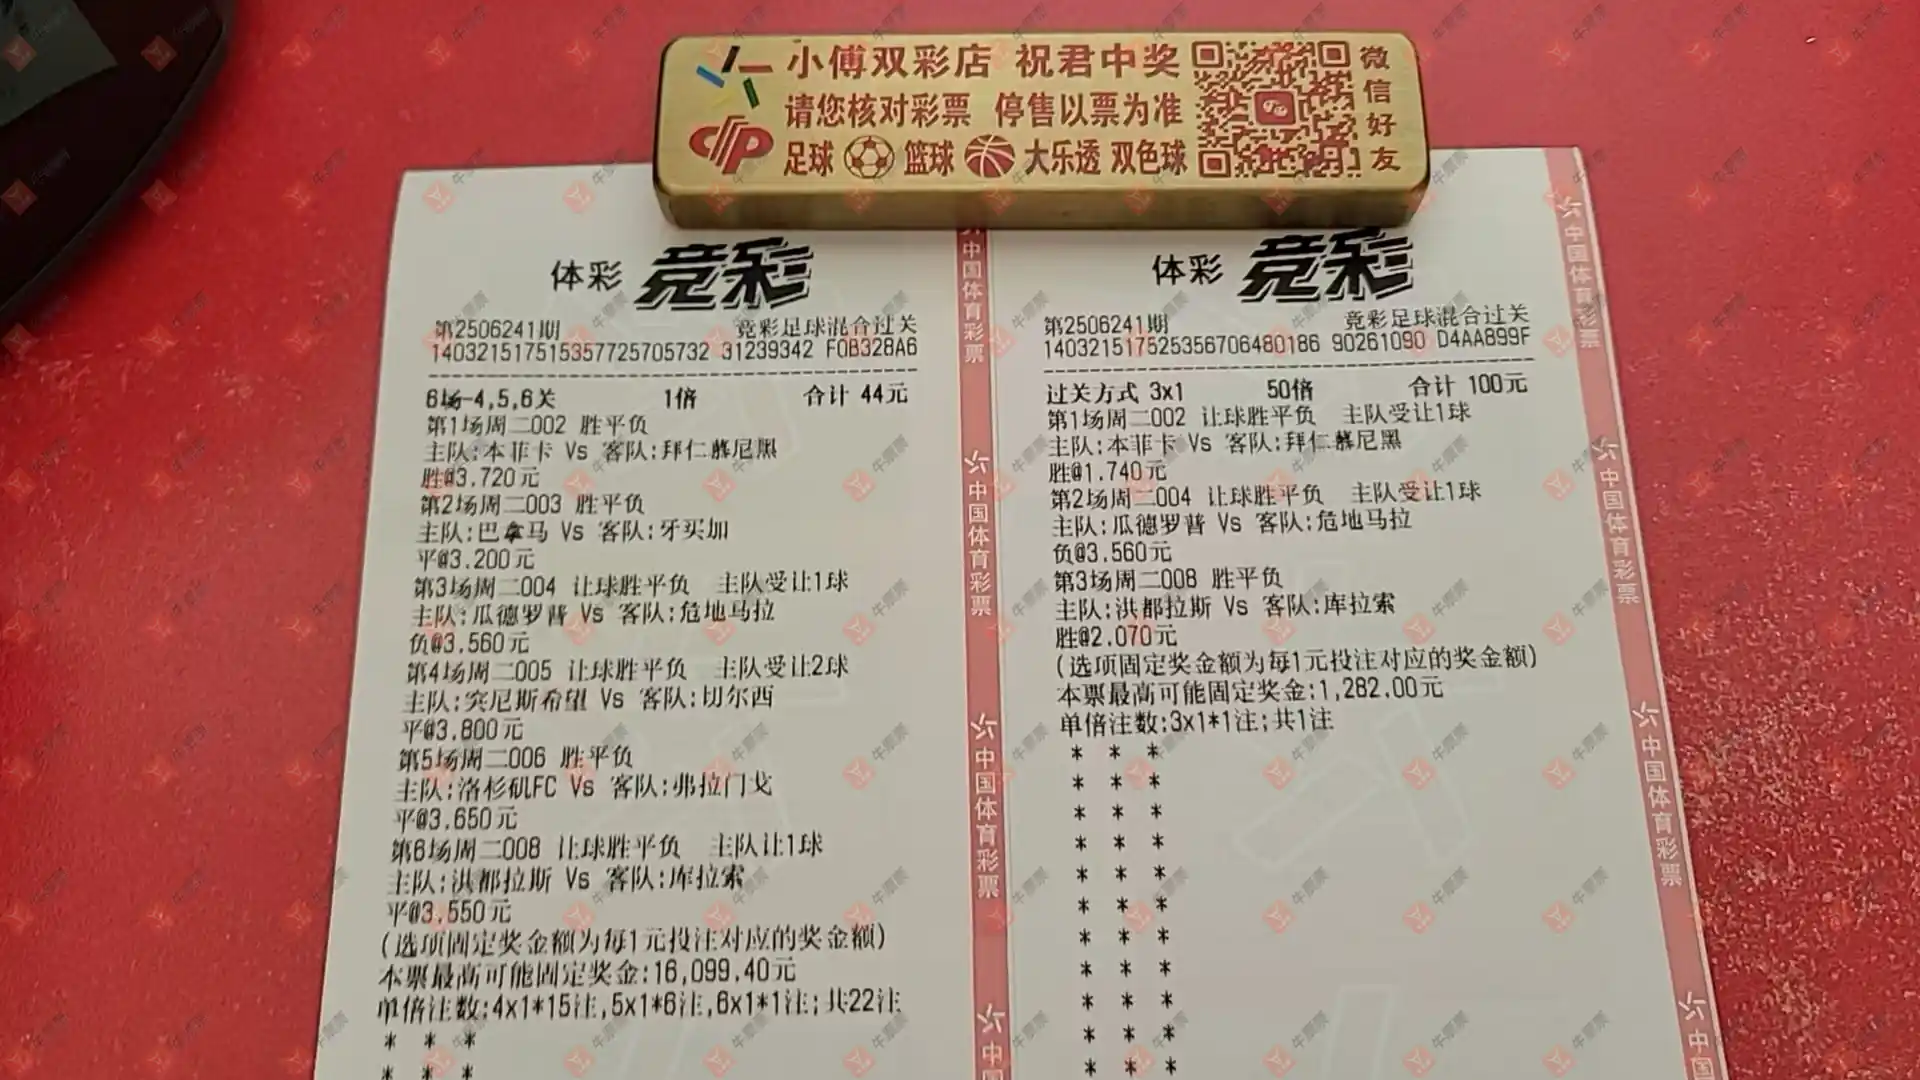 小傅双彩店 祝君中奖
请您核对彩票 停售以票为准
足球 篮球 大乐透 双色球
微信好友
体彩 竞彩
第2506241期 竞彩足球混合过关
140321517515357725705732 31239342 F0B328A6
6场-4,5,6关 1倍 合计 44元
第1场周二002 胜平负
主队:本菲卡 Vs 客队:拜仁慕尼黑
胜@3.720元
第2场周二003 胜平负
主队:巴拿马 Vs 客队:牙买加
平@3.200元
第3场周二004 让球胜平负 主队受让1球
主队:瓜德罗普 Vs 客队:危地马拉
负@3.560元
第4场周二005 让球胜平负 主队受让2球
主队:突尼斯希望 Vs 客队:切尔西
平@3.800元
第5场周二006 胜平负
主队:洛杉矶FC Vs 客队:弗拉门戈
平@3.650元
第6场周二008 让球胜平负 主队让1球
主队:洪都拉斯 Vs 客队:库拉索
平@3.550元
(选项固定奖金额为每1元投注对应的奖金额)
本票最高可能固定奖金:16,099.40元
单倍注数:4x1*15注,5x1*6注,6x1*1注;共22注
中国体育彩票
中国体育彩票
中国体育彩票
体彩 竞彩
第2506241期 竞彩足球混合过关
140321517525356706480186 90261090 D4AA899F
过关方式 3x1 50倍 合计 100元
第1场周二002 让球胜平负 主队受让1球
主队:本菲卡 Vs 客队:拜仁慕尼黑
胜@1.740元
第2场周二004 让球胜平负 主队受让1球
主队:瓜德罗普 Vs 客队:危地马拉
负@3.560元
第3场周二008 胜平负
主队:洪都拉斯 Vs 客队:库拉索
胜@2.070元
(选项固定奖金额为每1元投注对应的奖金额)
本票最高可能固定奖金:1,282.00元
单倍注数:3x1*1注;共1注
中国体育彩票
中国体育彩票
中国体育彩票